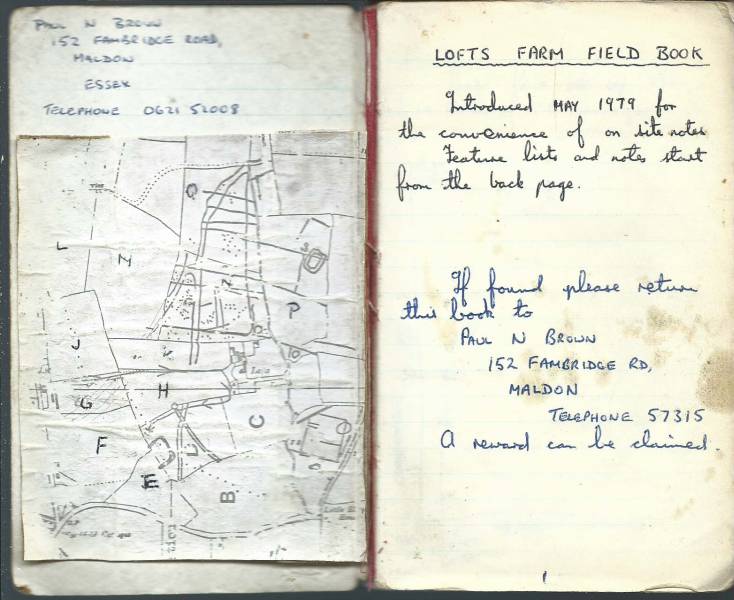 PAUL N BROWN
152 FAMBRIDGE ROAD,
MALDON
ESSEX
TELEPHONE 0621 52008
Q
L
N
S
Z
P
J
V
H
G
C
F
D
E
B
LOFTS FARM FIELD BOOK
Introduced MAY 1979 for
the convenience of on site notes
Feature lists and notes start
from the back page.
If found please return
this book to
PAUL N BROWN
152 FAMBRIDGE RD,
MALDON
TELEPHONE 57315
A reward can be claimed.
1